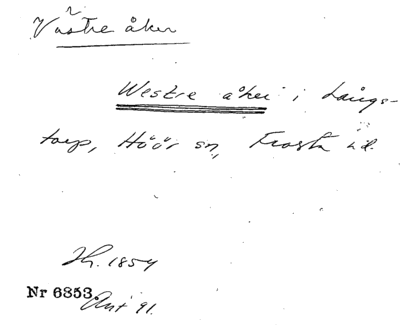 Västre åker
Westre åker i Långs-
torp, Höör sn, Frosta hd.
Hf. 1854
Nr 6353. Ant 91.